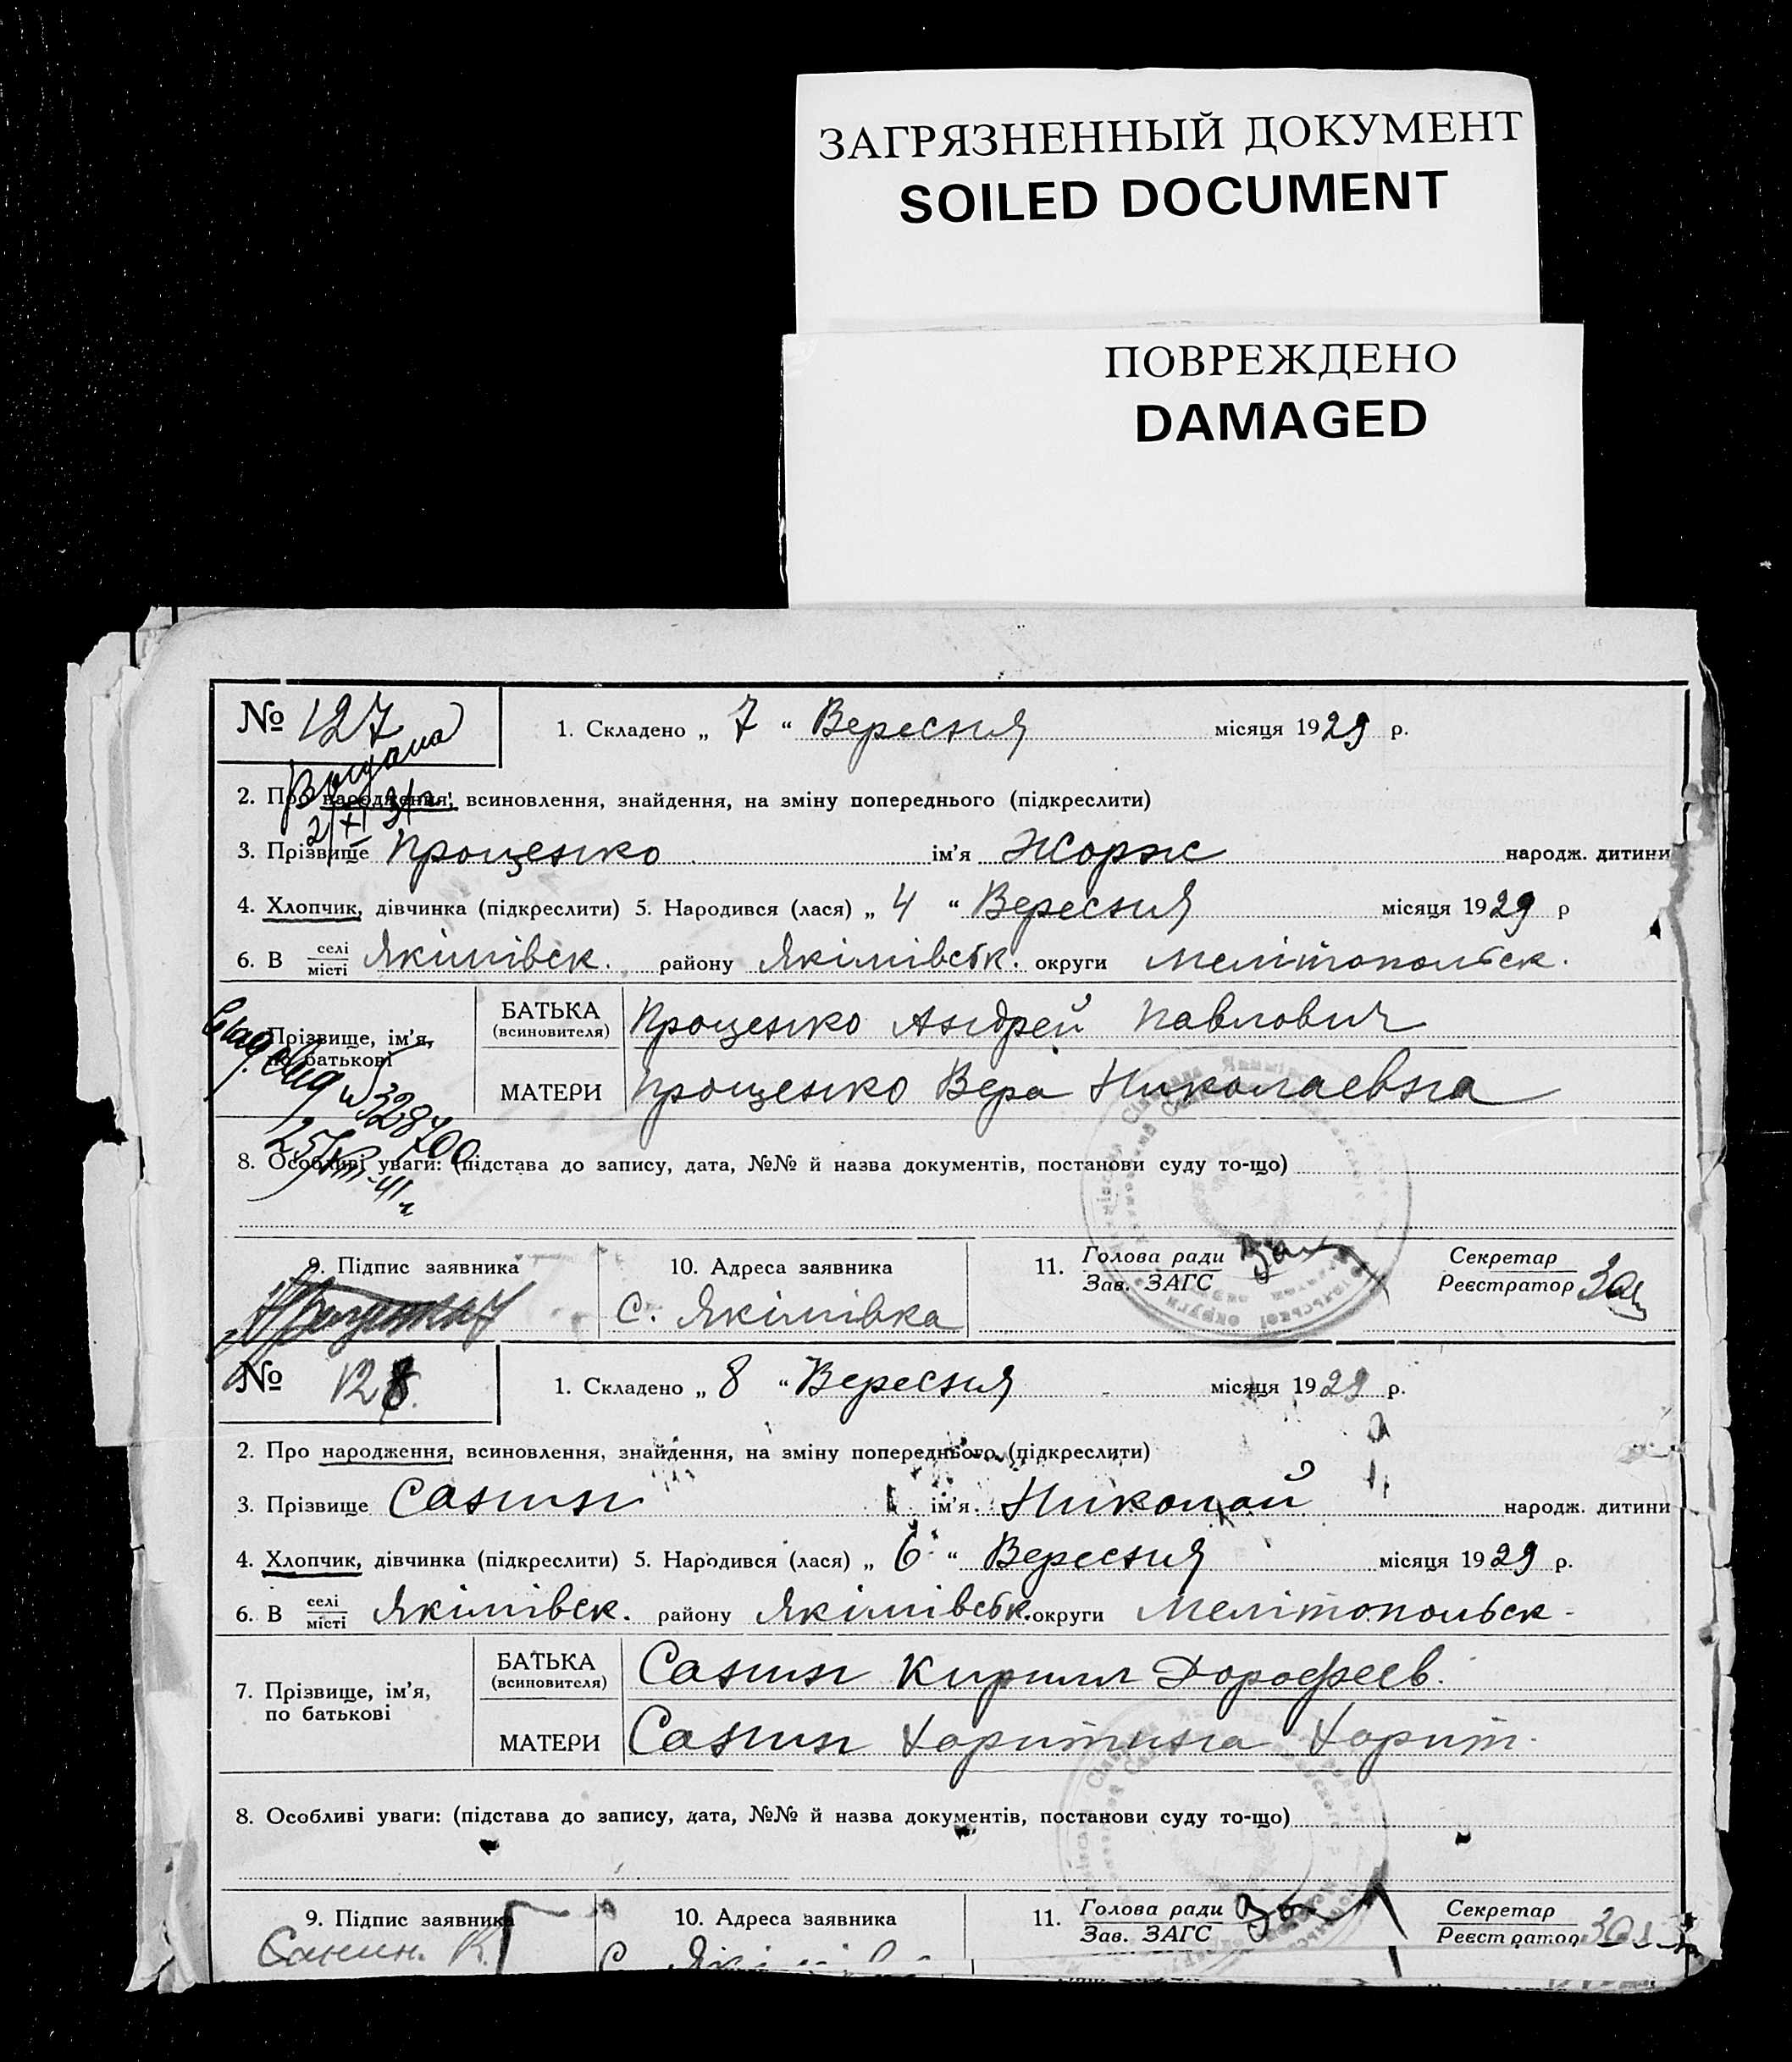 ЗАГРЯЗНЕННЫЙ ДОКУМЕНТ
SOILED DOCUMENT
ПОВРЕЖДЕНО
DAMAGED
№ 127
1. Складено „ 7 “ Вересня місяця 1929 р.
Видана
2. Про народження, всиновлення, знайдення, на зміну попереднього (підкреслити)
3. Прізвище Проценко ім'я Жорж народж. дитини
4. Хлопчик, дівчинка (підкреслити) 5. Народився (лася) „ 4 “ Вересня місяця 1929 р
6. В селі місті Якімівськ. району Якімівськ. округи Мелітопольськ.
Прізвище, ім'я, по батькові
БАТЬКА (всиновителя) Проценко Андрей Павлович
МАТЕРИ Проценко Вера Николаевна
8. Особливі уваги: (підстава до запису, дата, №№ й назва документів, постанови суду то-що)
9. Підпис заявника
10. Адреса заявника
с. Якімівка
11. Голова ради
Зав. ЗАГС
Секретар
Реєстратор
№ 128
1. Складено „ 8 “ Вересня місяця 1929 р.
2. Про народження, всиновлення, знайдення, на зміну попереднього (підкреслити)
3. Прізвище Санин ім'я Николай народж. дитини
4. Хлопчик, дівчинка (підкреслити) 5. Народився (лася) „ 6 “ Вересня місяця 1929 р.
6. В селі місті Якімівськ. району Якімівськ. округи Мелітопольськ.
7. Прізвище, ім'я, по батькові
БАТЬКА (всиновителя) Санин Кирилл Дорофеев.
МАТЕРИ Санин Харитина Харит.
8. Особливі уваги: (підстава до запису, дата, №№ й назва документів, постанови суду то-що)
9. Підпис заявника
Санин. К.
10. Адреса заявника
11. Голова ради
Зав. ЗАГС
Секретар
Реєстратор